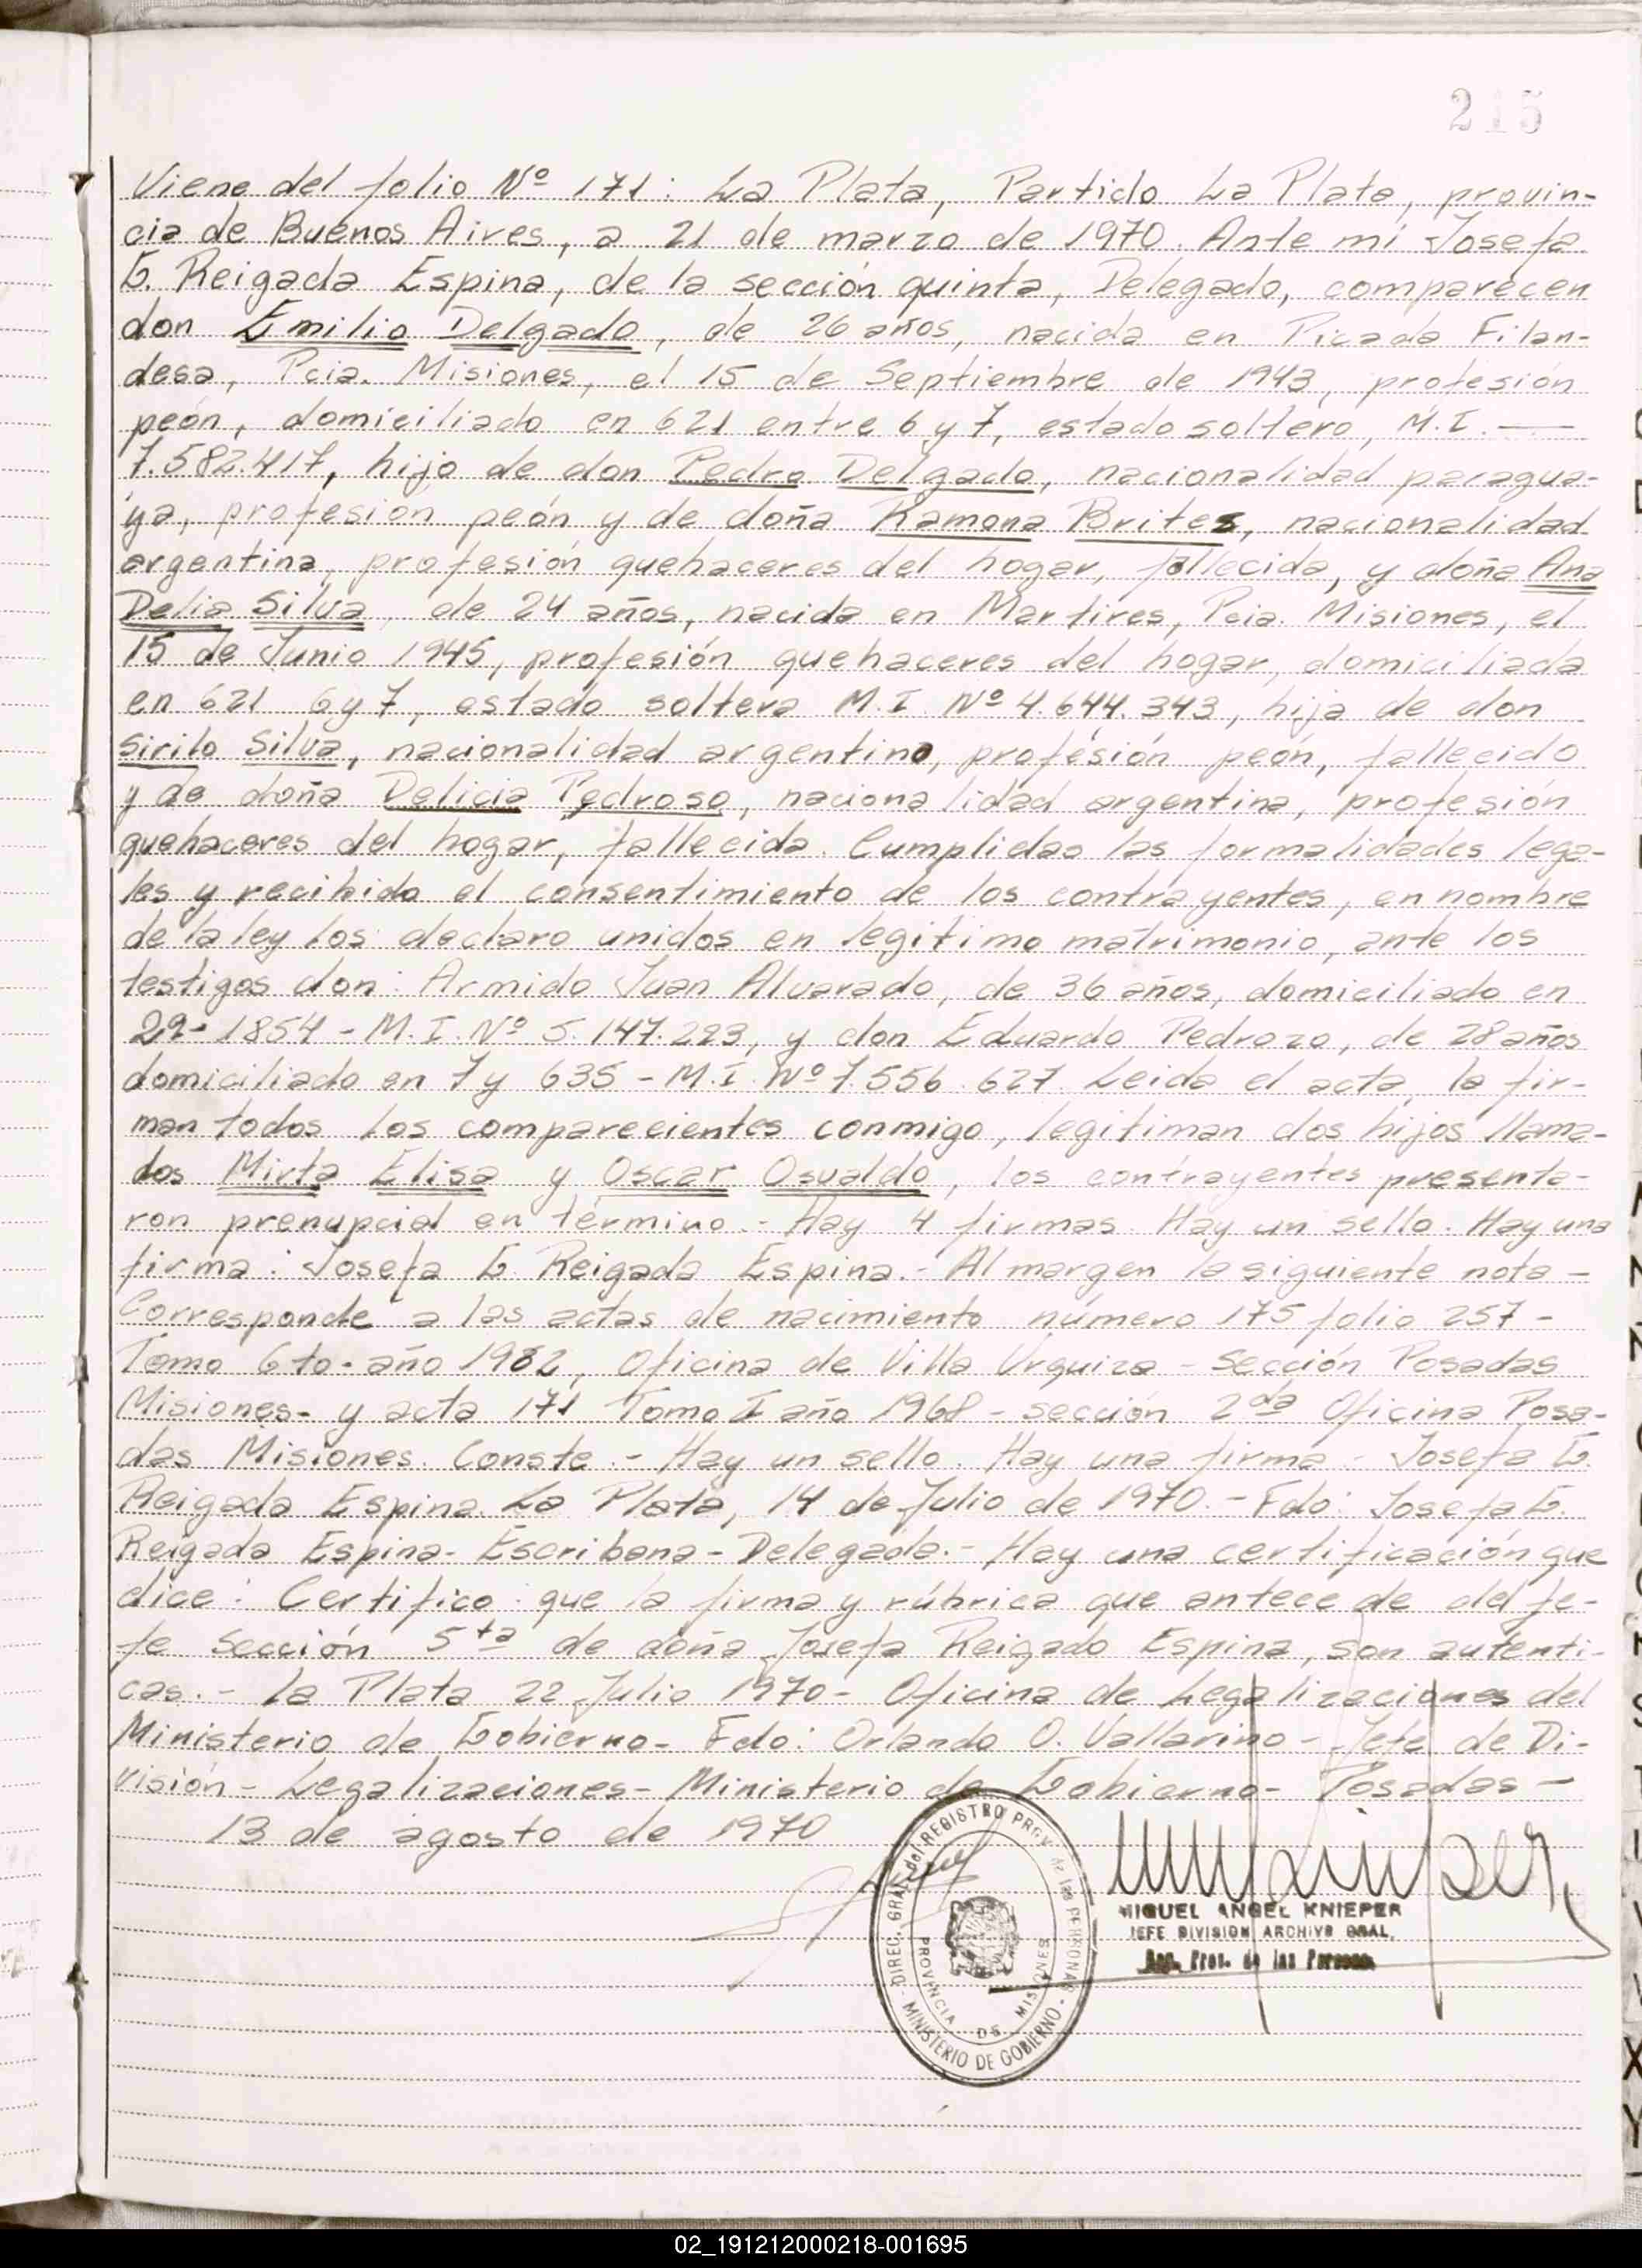 215
Viene del folio Nº 171: La Plata, Partido La Plata, provin-
cia de Buenos Aires, a 21 de marzo de 1970. Ante mi Josefa
G. Reigada Espina, de la sección quinta, Delegado, comparecen
don Emilio Delgado, de 26 años, nacida en Picada Filan-
desa, Pcia. Misiones, el 15 de Septiembre de 1943, profesión
peón, domiciliado en 621 entre 6 y 7, estado soltero, M.I. —
7.582.417, hijo de don Pedro Delgado, nacionalidad paragua-
ya, profesión peón y de doña Ramona Brites, nacionalidad
argentina, profesión quehaceres del hogar, fallecida, y doña Ana
Delia Silva, de 24 años, nacida en Martires, Pcia. Misiones, el
15 de Junio 1945, profesión quehaceres del hogar, domiciliada
en 621 6 y 7, estado soltera M.I. Nº 4.644.343, hija de don
Sirilo Silva, nacionalidad argentino, profesión peón, fallecido
y de doña Delicia Pedroso, nacionalidad argentina, profesión
quehaceres del hogar, fallecida. Cumplidas las formalidades lega-
les y recibido el consentimiento de los contrayentes, en nombre
de la ley los declaro unidos en legítimo matrimonio, ante los
testigos don: Armido Juan Alvarado, de 36 años, domiciliado en
29-1854 - M.I. Nº 5.147.223, y don Eduardo Pedrozo, de 28 años
domiciliado en 7 y 635 - M.I. Nº 7.556.627. Leida el acta, la fir-
man todos los comparecientes conmigo, legitiman dos hijos llama-
dos Mirta Elisa y Oscar Osvaldo, los contrayentes presenta-
ron prenupcial en término.- Hay 4 firmas. Hay un sello. Hay una
firma: Josefa G. Reigada Espina.- Al margen la siguiente nota -
Corresponde a las actas de nacimiento número 175 folio 257 -
Tomo 6to- año 1962, Oficina de Villa Urquiza - sección Posadas
Misiones- y acta 171 Tomo I año 1968 - sección 2da Oficina Posa-
das Misiones. Conste.- Hay un sello. Hay una firma - Josefa G.
Reigada Espina. La Plata, 14 de Julio de 1970.- Fdo: Josefa G.
Reigada Espina- Escribana - Delegada.- Hay una certificación que
dice: Certifico: que la firma y rúbrica que antecede del Je-
fe sección 5ta de doña Josefa Reigado Espina, son autenti-
cas.- La Plata 22 Julio 1970- Oficina de Legalizaciones del
Ministerio de Gobierno- Fdo: Orlando O. Vallarino - Jefe de Di-
visión - Legalizaciones- Ministerio de Gobierno- Posadas -
13 de agosto de 1970
DIREC. GRAL. del REGISTRO PROV. de las PERSONAS
PROVINCIA DE MISIONES
MINISTERIO DE GOBIERNO
MIGUEL ANGEL KNIEPER
JEFE DIVISION ARCHIVO GRAL.
Reg. Prov. de las Personas
02_191212000218-001695